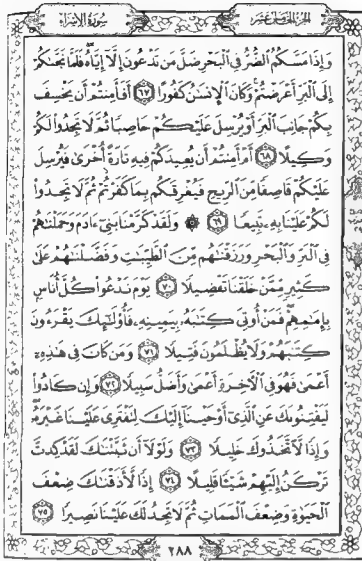 الجزء الخامس عشر
سورة الإسراء
وَإِذَا مَسَّكُمُ ٱلضُّرُّ فِى ٱلْبَحْرِ ضَلَّ مَن تَدْعُونَ إِلَّآ إِيَّاهُ فَلَمَّا نَجَّىٰكُمْ
إِلَى ٱلْبَرِّ أَعْرَضْتُمْ وَكَانَ ٱلْإِنسَٰنُ كَفُورًا ٦٧ أَفَأَمِنتُمْ أَن يَخْسِفَ
بِكُمْ جَانِبَ ٱلْبَرِّ أَوْ يُرْسِلَ عَلَيْكُمْ حَاصِبًا ثُمَّ لَا تَجِدُوا۟ لَكُمْ
وَكِيلًا ٦٨ أَمْ أَمِنتُمْ أَن يُعِيدَكُمْ فِيهِ تَارَةً أُخْرَىٰ فَيُرْسِلَ
عَلَيْكُمْ قَاصِفًا مِّنَ ٱلرِّيحِ فَيُغْرِقَكُم بِمَا كَفَرْتُمْ ثُمَّ لَا تَجِدُوا۟
لَكُمْ عَلَيْنَا بِهِۦ تَبِيعًا ٦٩ ۞ وَلَقَدْ كَرَّمْنَا بَنِىٓ ءَادَمَ وَحَمَلْنَٰهُمْ
فِى ٱلْبَرِّ وَٱلْبَحْرِ وَرَزَقْنَٰهُم مِّنَ ٱلطَّيِّبَٰتِ وَفَضَّلْنَٰهُمْ عَلَىٰ
كَثِيرٍ مِّمَّنْ خَلَقْنَا تَفْضِيلًا ٧٠ يَوْمَ نَدْعُوا۟ كُلَّ أُنَاسٍۭ
بِإِمَٰمِهِمْ فَمَنْ أُوتِىَ كِتَٰبَهُۥ بِيَمِينِهِۦ فَأُو۟لَٰٓئِكَ يَقْرَءُونَ
كِتَٰبَهُمْ وَلَا يُظْلَمُونَ فَتِيلًا ٧١ وَمَن كَانَ فِى هَٰذِهِۦٓ
أَعْمَىٰ فَهُوَ فِى ٱلْءَاخِرَةِ أَعْمَىٰ وَأَضَلُّ سَبِيلًا ٧٢ وَإِن كَادُوا۟
لَيَفْتِنُونَكَ عَنِ ٱلَّذِىٓ أَوْحَيْنَآ إِلَيْكَ لِتَفْتَرِىَ عَلَيْنَا غَيْرَهُۥ
وَإِذًا لَّٱتَّخَذُوكَ خَلِيلًا ٧٣ وَلَوْلَآ أَن ثَبَّتْنَٰكَ لَقَدْ كِدتَّ
تَرْكَنُ إِلَيْهِمْ شَيْـًٔا قَلِيلًا ٧٤ إِذًا لَّأَذَقْنَٰكَ ضِعْفَ
ٱلْحَيَوٰةِ وَضِعْفَ ٱلْمَمَاتِ ثُمَّ لَا تَجِدُ لَكَ عَلَيْنَا نَصِيرًا ٧٥
٢٨٨